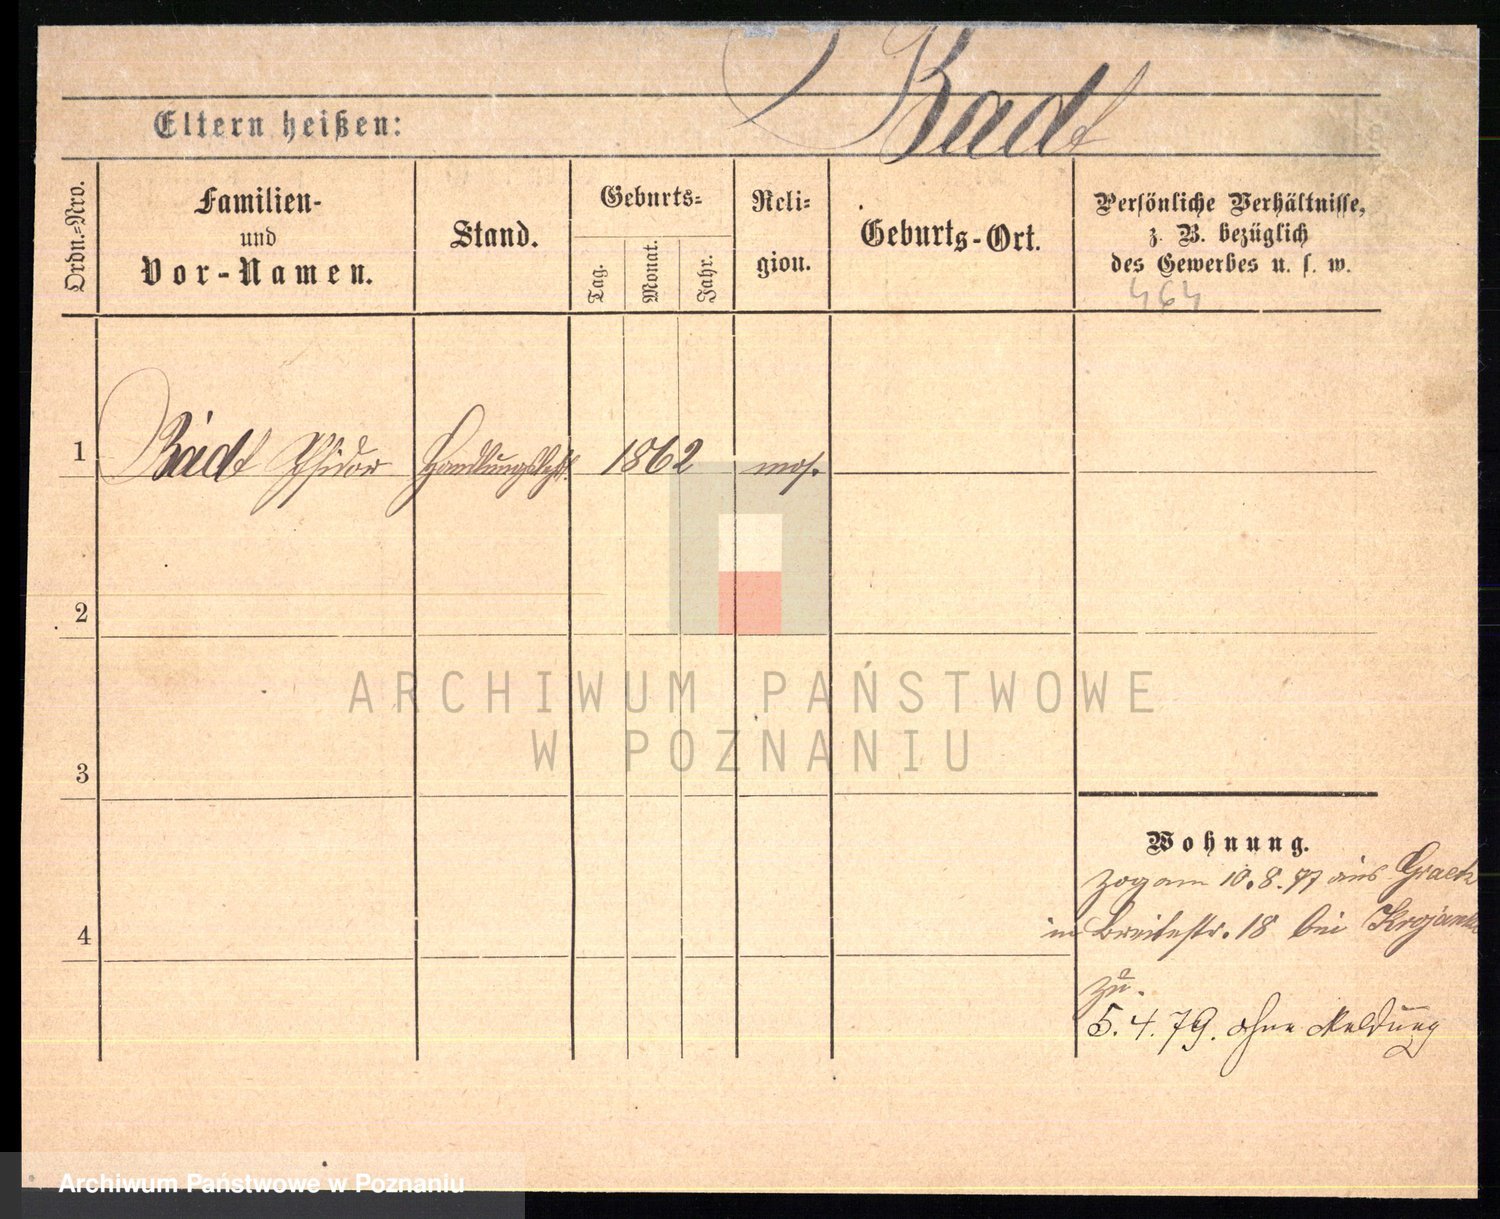 Badt
Eltern heißen:
Ordn.-Nro.
Familien-
und
Vor-Namen.
Stand.
Geburts-
Tag.
Monat.
Jahr.
Reli-
gion.
Geburts-Ort.
Persönliche Verhältnisse,
z. B. bezüglich
des Gewerbes u. s. w.
464
1
Badt Isidor
1862
mos.
2
3
4
ARCHIWUM PAŃSTWOWE
W POZNANIU
Wohnung.
zog am 10.8.77 aus Graetz
in Breitestr. 18 bei
zu.
5.4.79. ohne Meldung
Archiwum Państwowe w Poznaniu